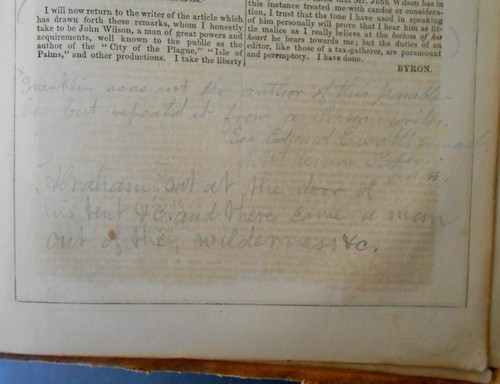 I will now return to the writer of the article which
has drawn forth these remarks, whom I honestly
take to be John Wilson, a man of great powers and
acquirements, well known to the public as the
author of the "City of the Plague," "Isle of
Palms," and other productions. I take the liberty
this instance treated me with candor or considera-
tion, I trust that the tone I have used in speaking
of him personally will prove that I bear him as lit-
tle malice as I really believe at the bottom of his
heart he bears towards me; but the duties of an
editor, like those of a tax-gatherer, are paramount
and peremptory. I have done.
BYRON.
Franklin was not the author of this
but repeated it from a writer.
See
Abraham sat at the door of
his tent &c and there came a man
out of the wilderness &c.